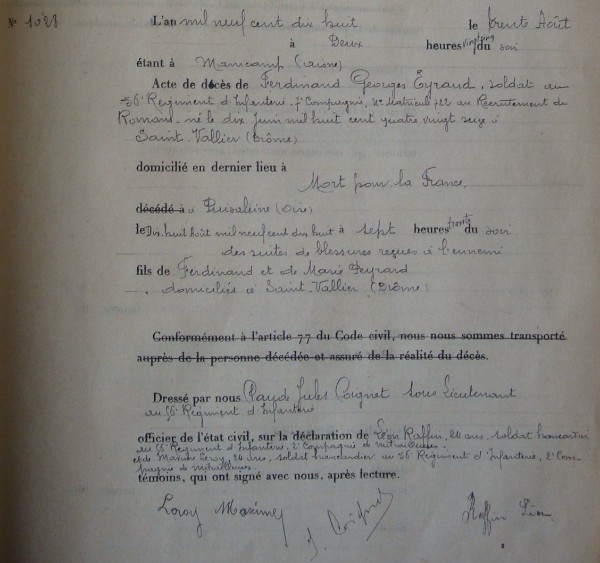 N° 1021
L'an mil neuf cent dix huit le trente Août
à Deux heures vingt cinq du soir
étant à Manicamp (Aisne)
Acte de décès de Ferdinand Georges Eyraud, soldat au
56e Régiment d'Infanterie, 7e Compagnie, N° Matricule 722 au Recrutement de
Romans, né le dix Juin mil huit cent quatre vingt seize à
Saint-Vallier (Drôme)
domicilié en dernier lieu à
Mort pour la France.
décédé à à Puisaleine (Oise)
le Dix huit Août mil neuf cent dix huit à sept heures trente du soir
des suites de blessures reçues à l'ennemi
fils de Ferdinand et de Marie Peyrard
domiciliés à Saint-Vallier (Drôme)
Conformément à l'article 77 du Code civil, nous nous sommes transporté
auprès de la personne décédée et assuré de la réalité du décès.
Dressé par nous Claude Jules Coignet Sous Lieutenant
au 56e Régiment d'Infanterie
officier de l'état civil, sur la déclaration de Léon Raffin, 20 ans, soldat brancardier
au 56e Régiment d'Infanterie, 2e Compagnie de mitrailleuses.
et de Maxime Leroy, 20 ans, soldat brancardier au 56e Régiment d'Infanterie, 2e Com-
pagnie de mitrailleuses.
témoins, qui ont signé avec nous, après lecture.
Leroy Maxime J. Coignet Raffin Léon